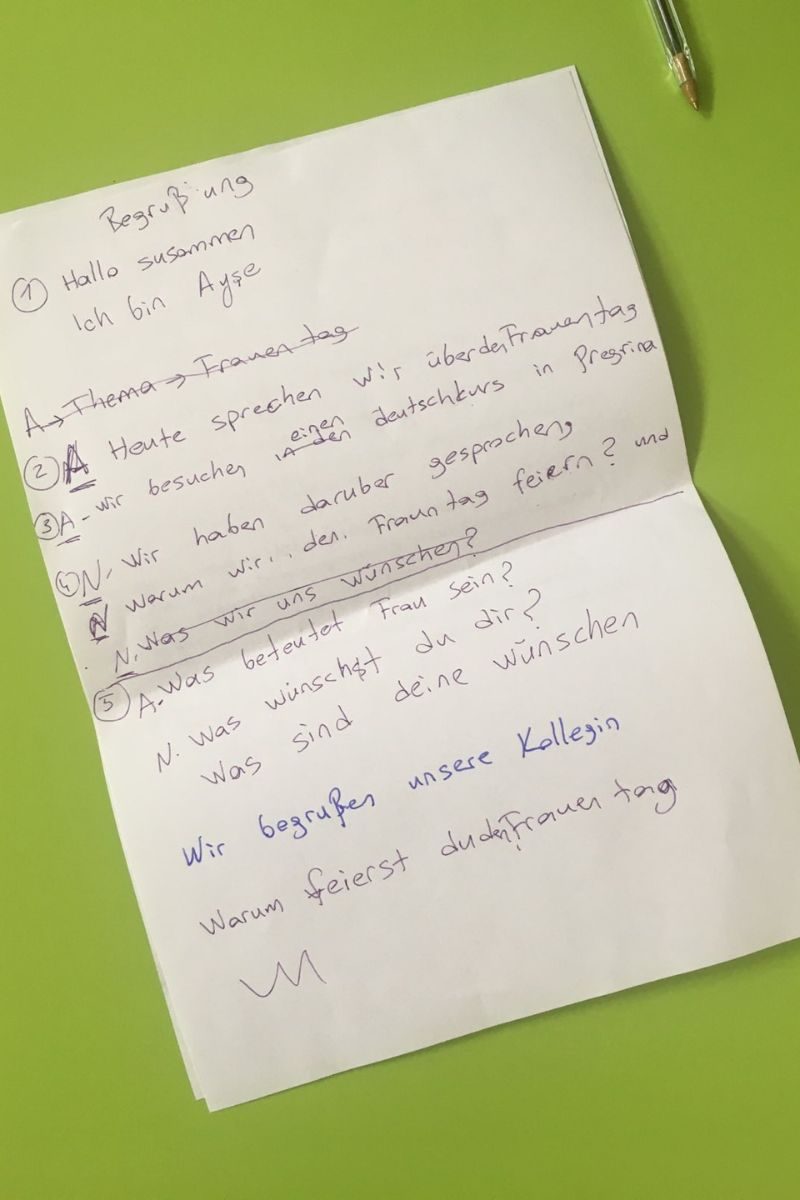 Begrußung
① Hallo susammen
Ich bin Ayşe
A→ Thema → Frauentag
② A Heute sprechen wir über den Frauentag
einen
③ A - wir besuchen in den deutschkurs in Pregrina
④ N, Wir haben daruber gesprochen,
N warum wir.. den. Frauntag feiern? und
N. Was wir uns wünschen?
⑤ A. Was beteutet Frau sein?
N. Was wünschst du dir?
Was sind deine wünschen
Wir begrußen unsere Kollegin
Warum feierst du den Frauentag